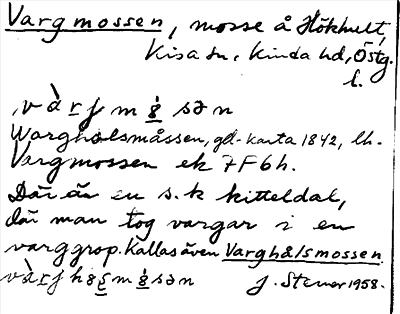 Vargmossen, mosse å Hökhult,
Kisa sn, Kinda hd, Östg.
l.
Wargholsmåssen, gd-karta 1842, lh.
Vargmossen ek 7F6h.
Där är en s.k kitteldal,
där man tog vargar i en
varggrop. Kallas även Varghålsmossen
J. Stenor 1958.